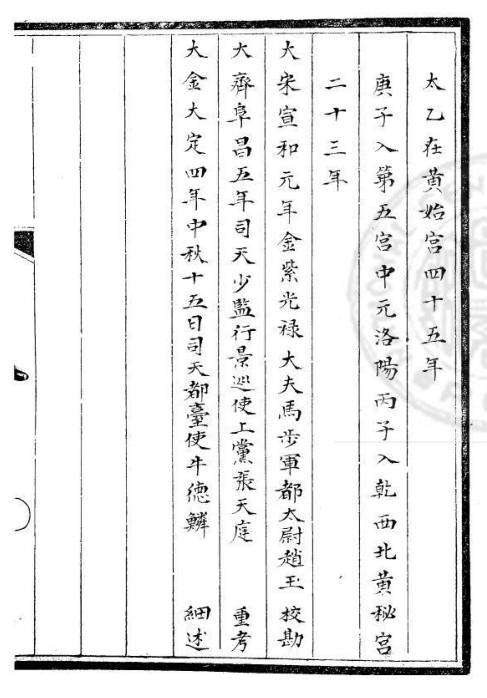 太乙在黄始宫四十五年
庚子入第五宫中元洛陽丙子入乾西北黄秘宫
二十三年
大宋宣和元年金紫光禄大夫馬步軍都太尉趙玉 校勘
大齊阜昌五年司天少監行景巡使上黨張天庭 重考
大金大定四年中秋十五日司天都臺使牛德鱗 細述